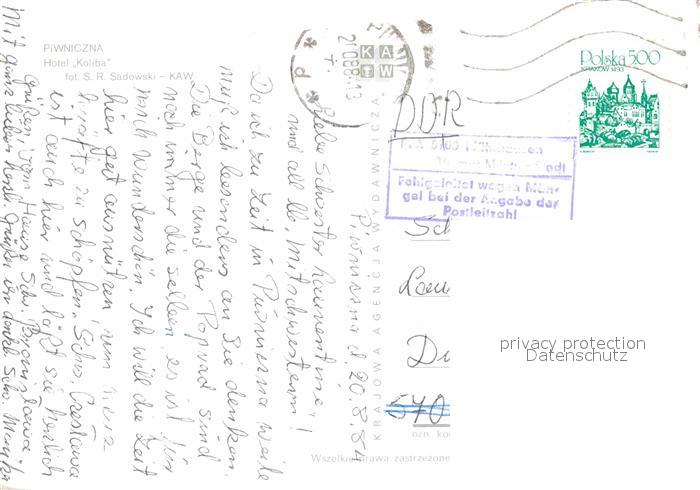 PIWNICZNA
Hotel „Koliba”
fot. S. R. Sadowski - KAW
Piwniczna d. 20.8.84
Liebe Schwester Laurentine!
und all lb. Mitschwestern!
Da ich zu Zeit in Piwniczna weile
muß ich besonders an Sie denken.
Die Berge und der Poprad sind
noch immer die selben, es ist für
mich wunderschön. Ich will die Zeit
hier gut ausnützen um neue
Kräfte zu schöpfen. Schw. Czesława
ist auch hier und läßt sie herzlich
grüßen. Vom Hause Schw. Bronisława
Mit ganz lieben herzl. Grüßen in dankb. Schw.
KRAJOWA AGENCJA WYDAWNICZA
KATW
DDR
Polska 5.00
KRAKÓW 1493
Fehlgeleitet wegen Män-
gel bei der Angabe der
Postleitzahl
570
Wszelkie prawa zastrzeżone
privacy protection
Datenschutz